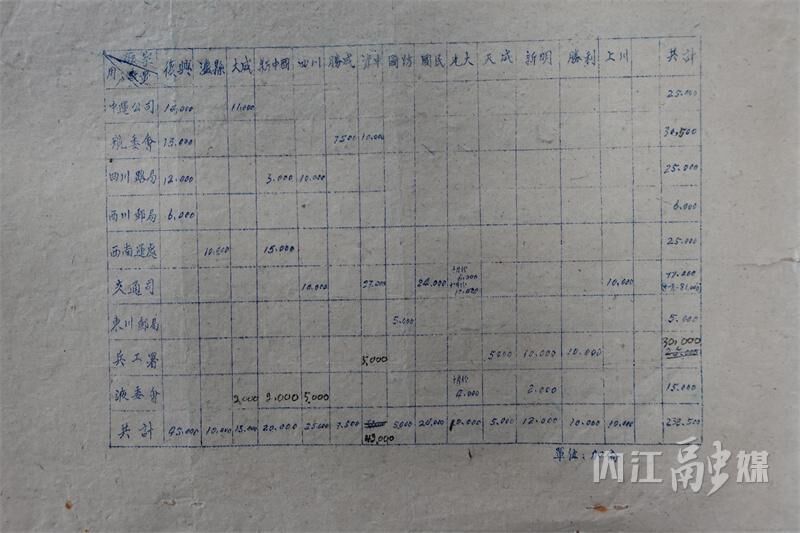 廠家 復興 瀘縣 大成 新中國 四川 勝成 國防 國民 光大 天成 新明 勝利 上川 共計
用戶 數量
中運公司 11,000 25.000
航委會 13.000 7500 10.000 30,500
四川路局 12.000 3.000 10.000 25.000
西川郵局 6,000 6.000
西南運處 10.000 15.000 25.000
交通司 10.000 27.000 24,000 10,000
東川郵局 5.000 5.000
兵工署 5,000 5000 10,000 10.000 30,000
液委會 2,000 5,000 2.000 15.000
共計 45.000 10.000 13.000 20.000 25000 7.500 5,000 24,000 10.000 5.000 12.000 10.000 10.000 232.500
42,000
單位：加侖
内江融媒